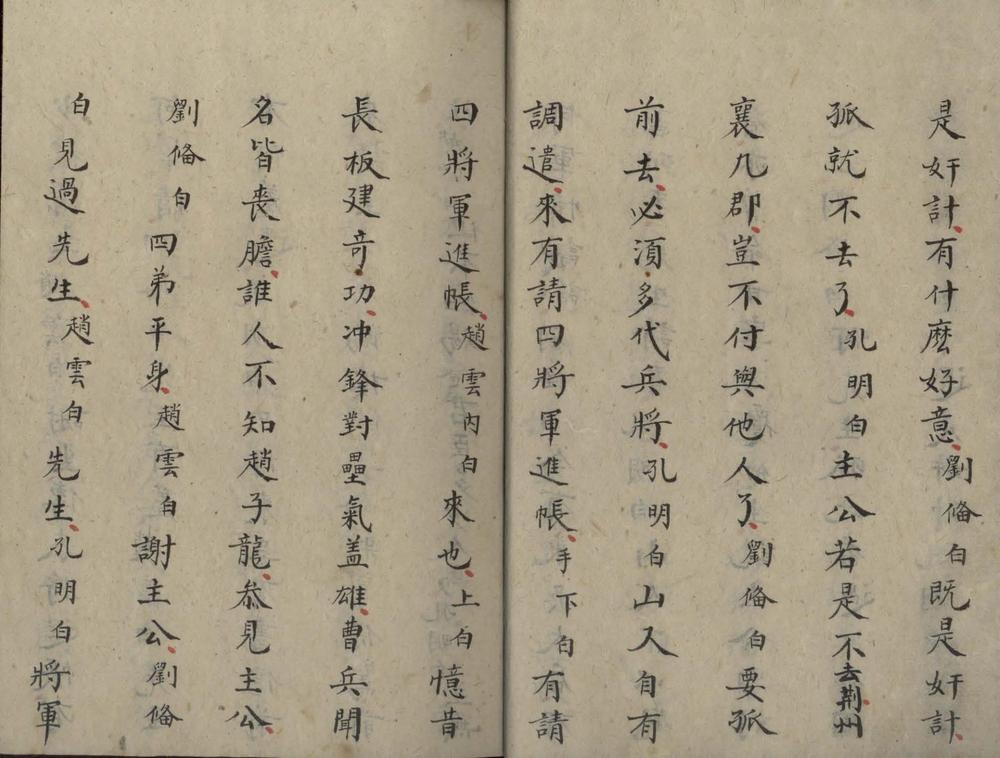 是奸計、有什麽好意、劉俻白既是奸計、
孤就不去了、孔明白主公若是不去荆州
襄几郡、豈不付與他人了、劉俻白要孤
前去、必須多代兵將、孔明白山人自有
調遣、來有請四將軍進帳、手下白有請
四將軍進帳、趙雲内白來也、上白憶昔
長板建竒功、冲鋒對壘氣盖雄、曹兵聞
名皆丧膽、誰人不知趙子龍、叅見主公、
劉俻白四弟平身、趙雲白謝主公、劉俻
白見過先生、趙雲白先生、孔明白將軍